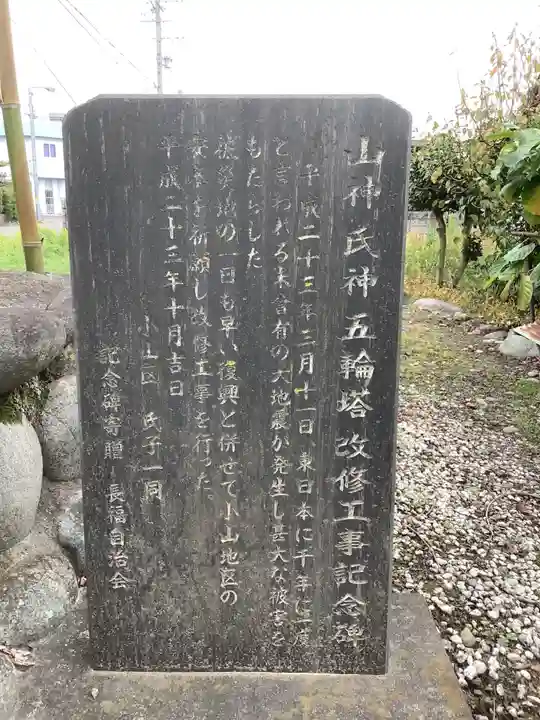 山神氏神五輪塔改修工事記念碑
平成二十三年三月十一日、東日本に千年に一度
と言われる未曽有の大地震が発生し甚大な被害を
もたらした
被災地の一日も早い復興と併せて小山地区の
安泰を祈願し改修工事を行った。
平成二十三年十月吉日
小山区 氏子一同
記念碑寄贈 長福自治会